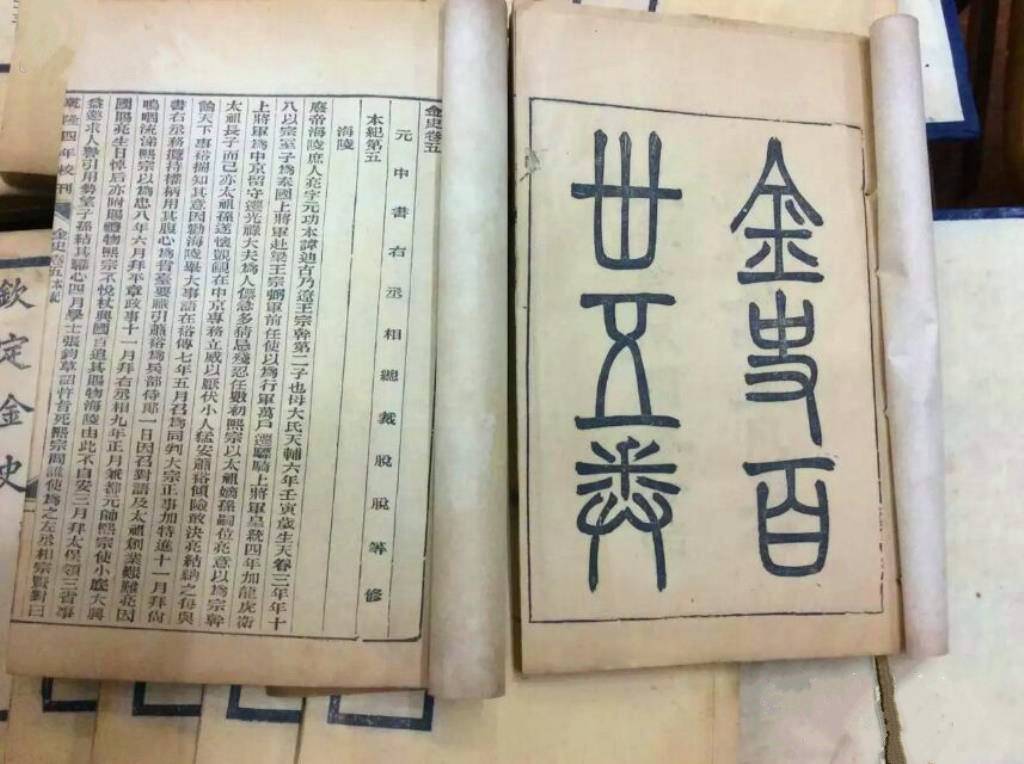 金史百
卅五卷
金史卷五
元中書右丞相總裁脫脫等修
本紀第五
海陵
廢帝海陵庶人亮字元功本諱迪古乃遼王宗幹第二子也母大氏天輔六年壬寅歲生天眷三年年十
八以宗室子爲奉國上將軍赴梁王宗弼軍前任使以爲行軍萬戶遷驃騎上將軍皇統四年加龍虎衛
上將軍爲中京留守遷光祿大夫爲人僄急多猜忌殘忍任數初熙宗以太祖嫡孫嗣位亮意以爲宗幹
太祖長子而己亦太祖孫遂懷覬覦在中京專務立威以厭伏小人猛安蕭裕傾險敢決亮結納之每與
論天下事裕揣知其意因勸海陵舉大事語在裕傳七年五月召爲同判大宗正事加特進十一月拜尙
書右丞務攬持權柄用其腹心爲省臺要職引蕭裕爲兵部侍郎一日因召對語及太祖創業艱難亮因
嗚咽流涕熙宗以爲忠八年六月拜平章政事十一月拜右丞相九年正月兼都元帥熙宗使小底大興
國賜亮生日悼后亦附賜禮物熙宗不悅杖興國百追其賜物海陵由此不自安三月拜太保領三省事
益邀求人譽引用勢望子孫結其驩心四月學士張鈞草詔忤旨死熙宗問誰使爲之左丞相宗賢對曰
乾隆四年校刊 金史卷五本紀
欽定金史